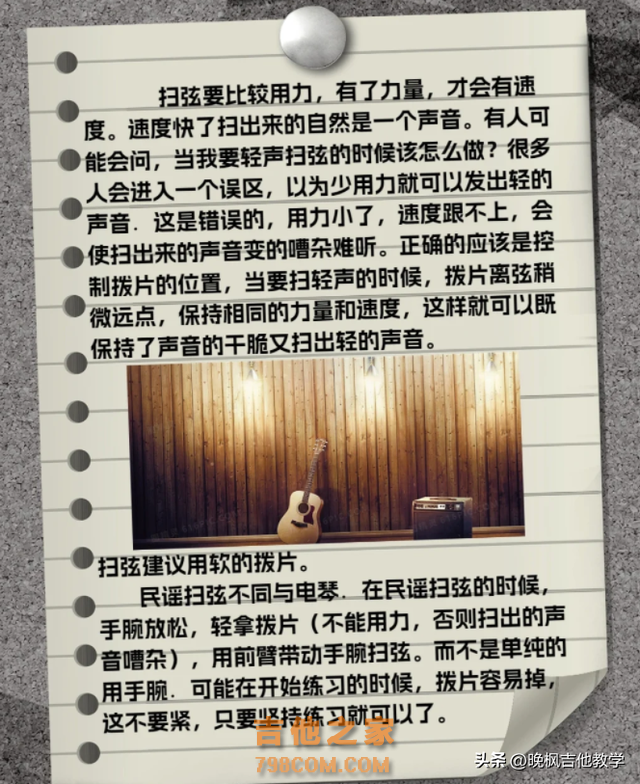 扫弦要比较用力，有了力量，才会有速
度。速度快了扫出来的自然是一个声音。有人可
能会问，当我要轻声扫弦的时候该怎么做？很多
人会进入一个误区，以为少用力就可以发出轻的
声音．这是错误的，用力小了，速度跟不上，会
使扫出来的声音变的嘈杂难听。正确的应该是控
制拨片的位置，当要扫轻声的时候，拨片离弦稍
微远点，保持相同的力量和速度，这样就可以既
保持了声音的干脆又扫出轻的声音。
扫弦建议用软的拨片。
民谣扫弦不同与电琴．在民谣扫弦的时候，
手腕放松，轻拿拨片（不能用力，否则扫出的声
音嘈杂），用前臂带动手腕扫弦。而不是单纯的
用手腕．可能在开始练习的时候，拨片容易掉，
这不要紧，只要坚持练习就可以了。
吉他之家
798COM.COM
头条 @晚枫吉他教学